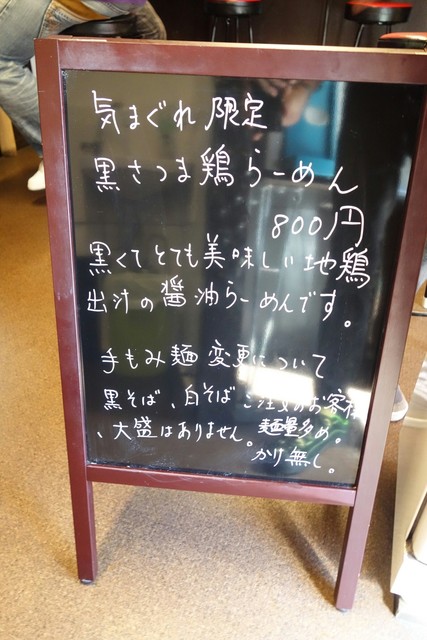 気まぐれ限定
黒さつま鶏らーめん
800円
黒くてとても美味しい地鶏
出汁の醤油らーめんです。
手もみ麺変更について
黒そば、白そばご注文のお客様
、大盛はありません。麺量多め。
かり無し。